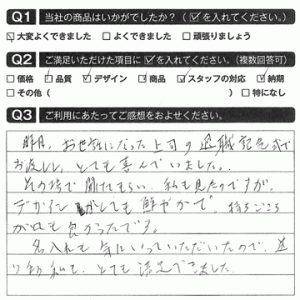 Q1 当社の商品はいかがでしたか？（☑を入れてください。）
☑大変よくできました □よくできました □頑張りましょう
Q2 ご満足いただけた項目に☑を入れてください。（複数回答可）
□価格 ☑品質 ☑デザイン ☑商品 ☑スタッフの対応 ☑納期
□その他（ ） □特になし
Q3 ご利用にあたってご感想をおよせください。
昨日、お世話になった上司の退職記念式で
お渡しし、とても喜んでいました。
その場で開けてもらい、私も見たのですが、
デザインがとても鮮やかで、持ちごこち
が口も良かったです。
名入れも気にいっていただいたので、送
り物 私も、とても満足できました。